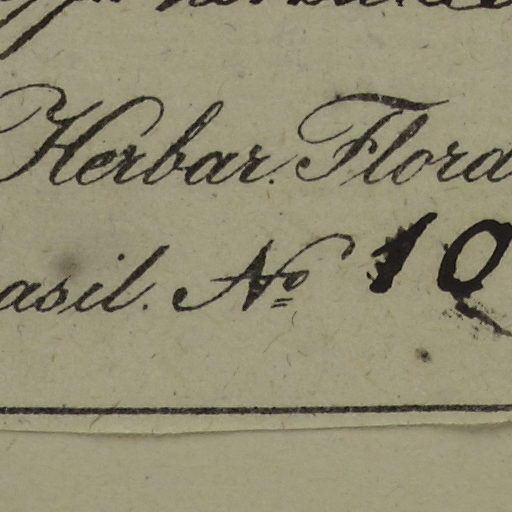 Herbar. Flora
asil. No 10